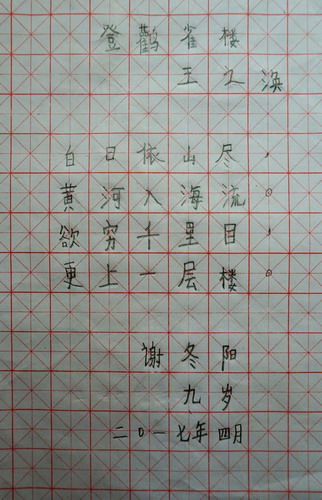 登鹳雀楼
王之涣
白日依山尽，
黄河入海流。
欲穷千里目，
更上一层楼。
谢冬阳
九岁
二0一七年四月